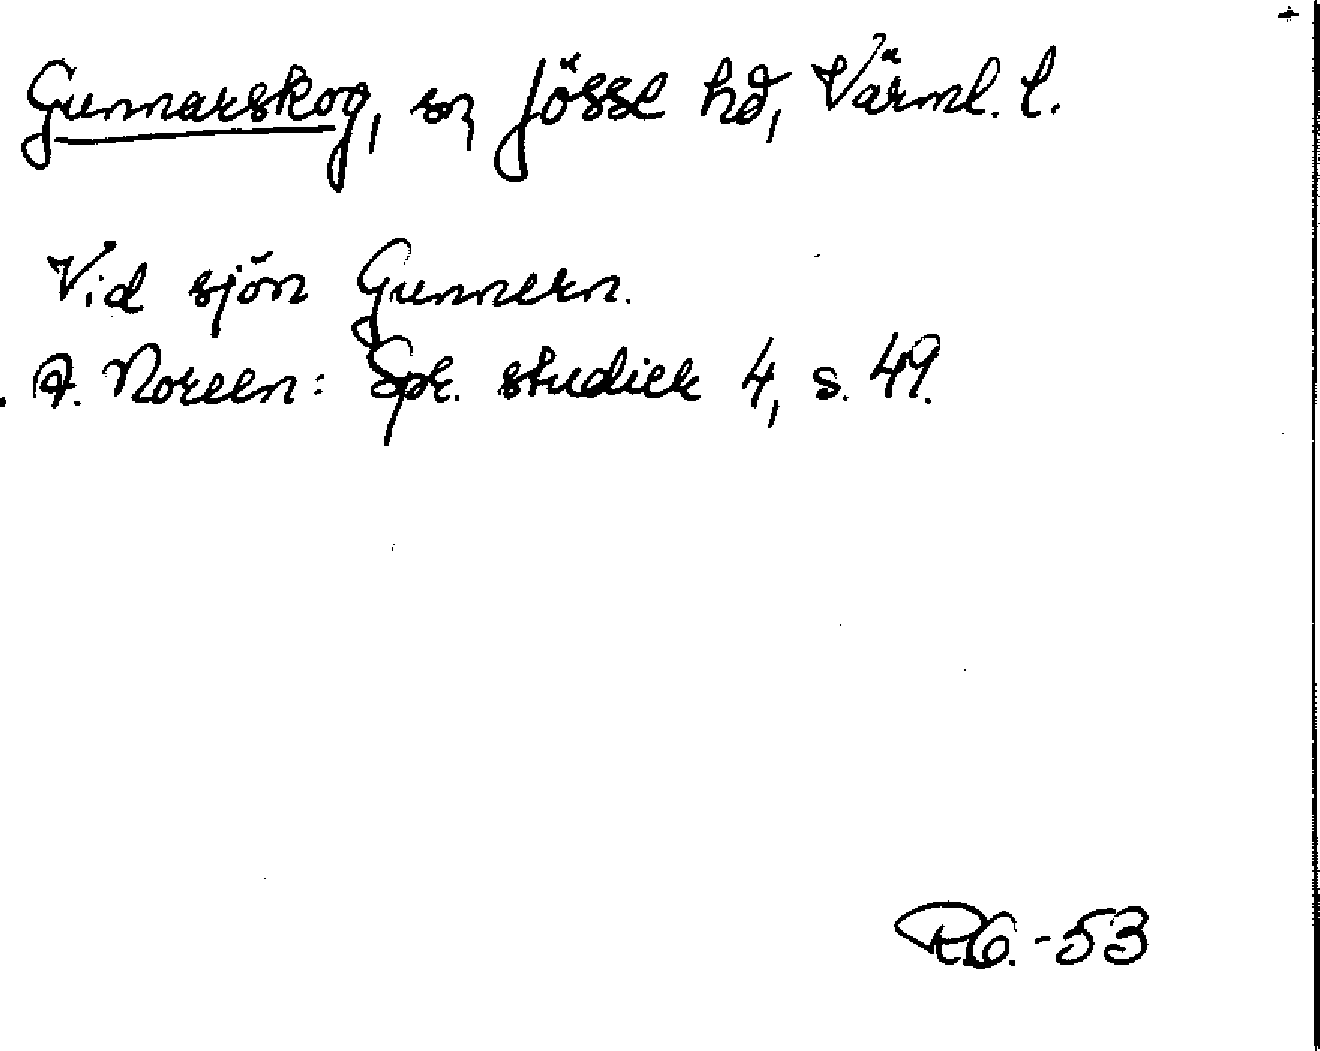 Gunnarskog, sn, Jösse hd, Värml. l.
Vid sjön Gunnern.
A. Noreen: Spr. studier 4, s. 49.
R.G. -53